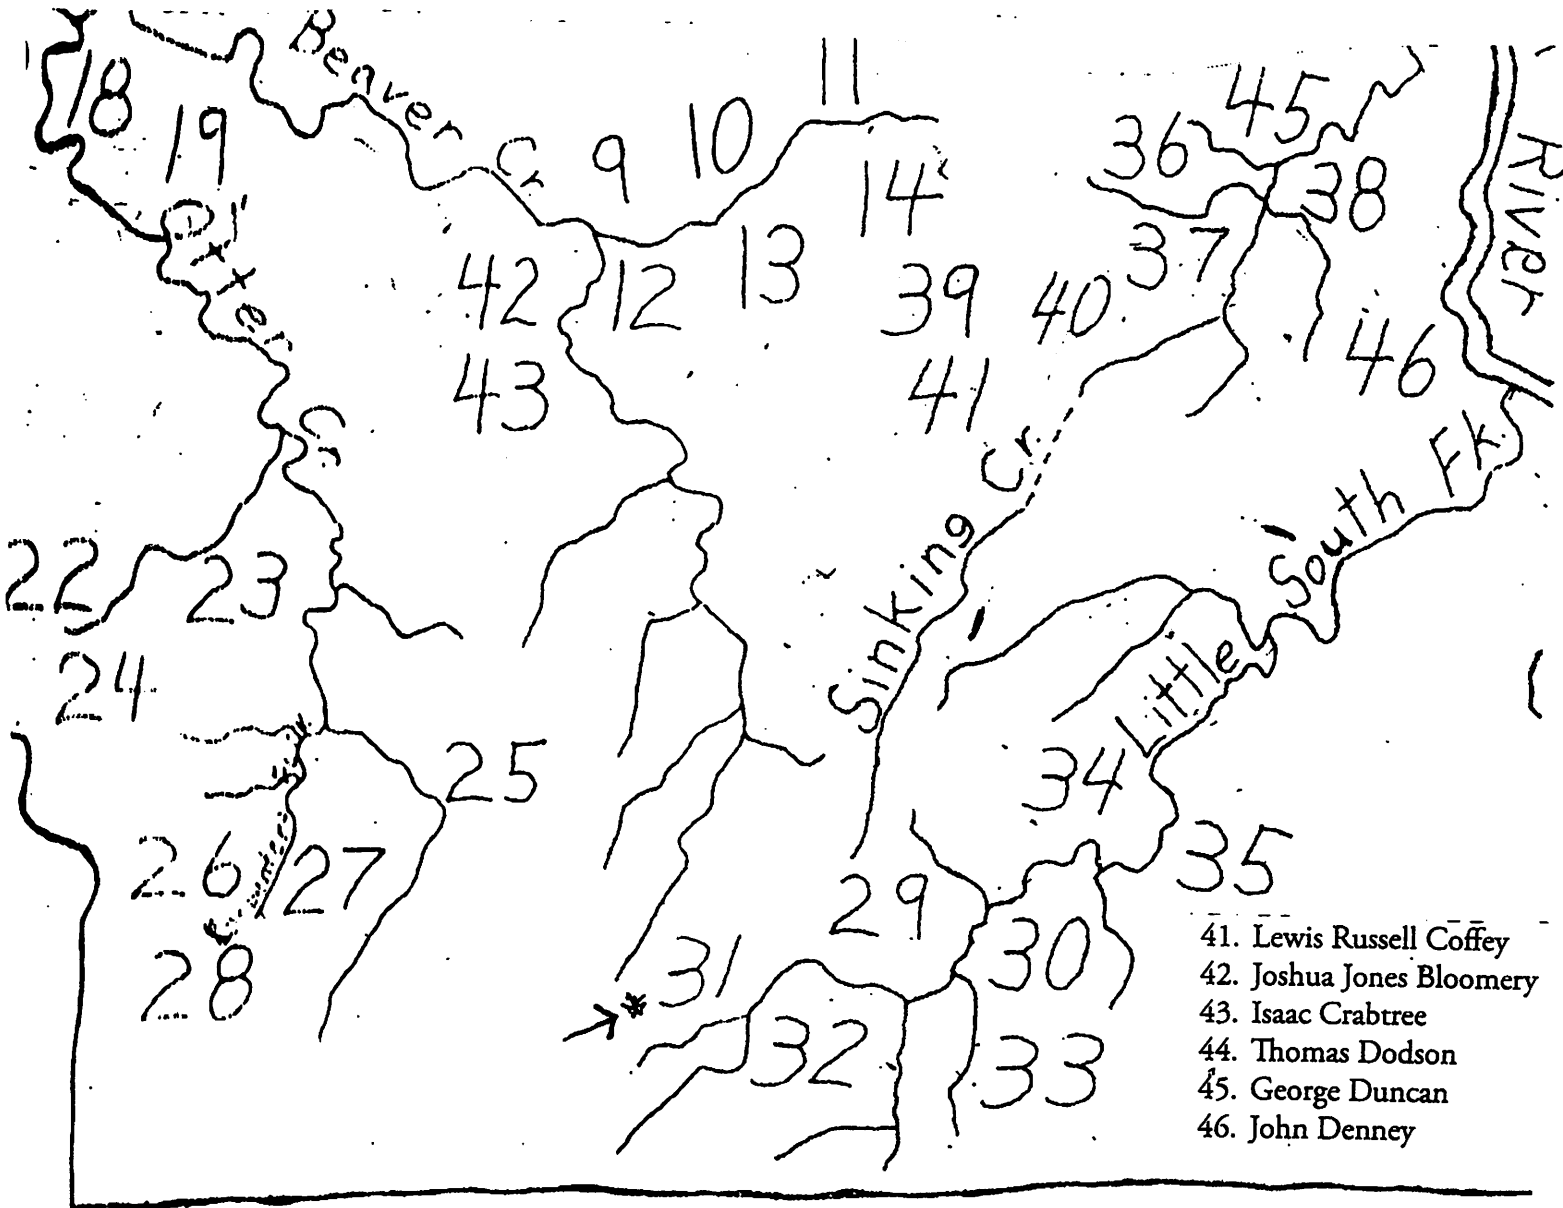 Beaver Cr
11
45
18
10
36
19
9
14
38
River
Otter Cr.
13
37
42
12
39
40
46
43
41
Sinking Cr.
Little South Fk.
22
23
24
25
34
26
27
35
29
28
31
30
32
33
41. Lewis Russell Coffey
42. Joshua Jones Bloomery
43. Isaac Crabtree
44. Thomas Dodson
45. George Duncan
46. John Denney